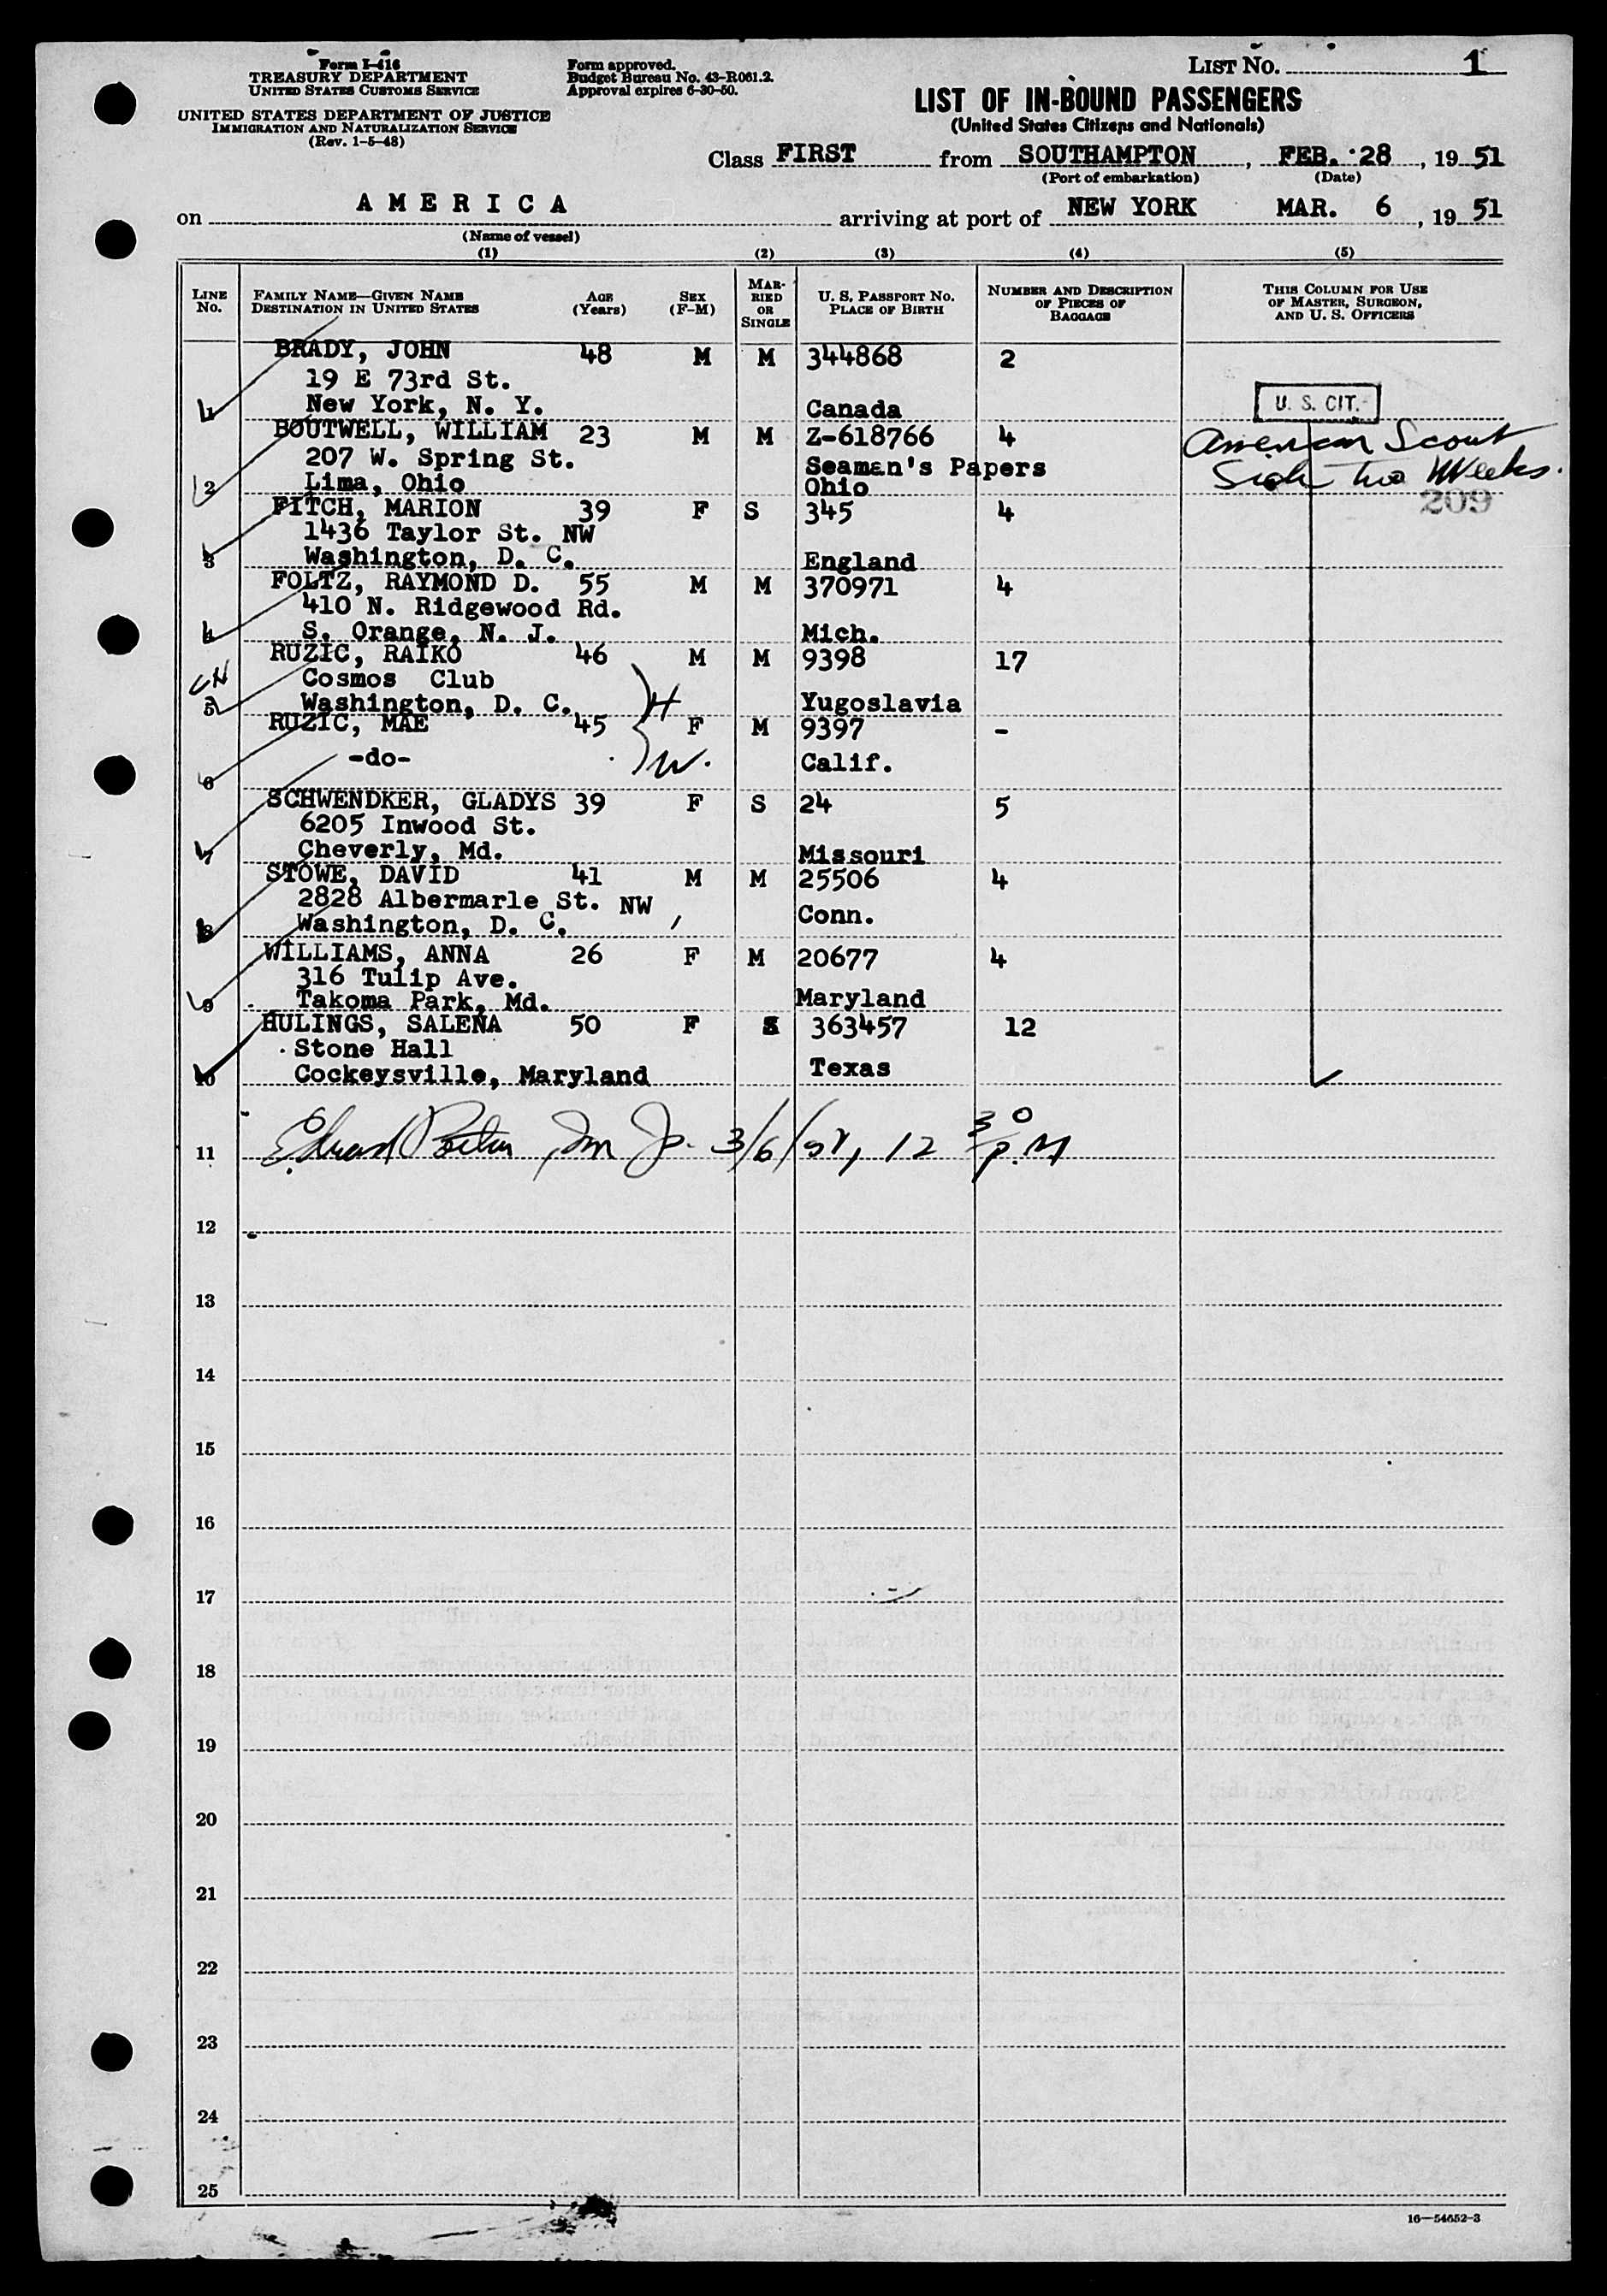 Form I-416
TREASURY DEPARTMENT
UNITED STATES CUSTOMS SERVICE
UNITED STATES DEPARTMENT OF JUSTICE
IMMIGRATION AND NATURALIZATION SERVICE
(Rev. 1-5-48)
Form approved.
Budget Bureau No. 43-R061.2.
Approval expires 6-30-50.
LIST No. 1
LIST OF IN-BOUND PASSENGERS
(United States Citizens and Nationals)
Class FIRST from SOUTHAMPTON, FEB. 28, 19 51
(Port of embarkation) (Date)
on AMERICA arriving at port of NEW YORK MAR. 6, 19 51
(Name of vessel)
(1) (2) (3) (4) (5)
LINE No.
FAMILY NAME—GIVEN NAME
DESTINATION IN UNITED STATES
AGE (Years)
SEX (F-M)
MARRIED OR SINGLE
U. S. PASSPORT No.
PLACE OF BIRTH
NUMBER AND DESCRIPTION OF PIECES OF BAGGAGE
THIS COLUMN FOR USE OF MASTER, SURGEON, AND U. S. OFFICERS
BRADY, JOHN 48 M M 344868 2
19 E 73rd St.
1 New York, N. Y. Canada U. S. CIT.
BOUTWELL, WILLIAM 23 M M Z-618766 4 American Scout
207 W. Spring St. Seaman's Papers Sick Two Weeks.
2 Lima, Ohio Ohio
FITCH, MARION 39 F S 345 4 209
1436 Taylor St. NW
3 Washington, D. C. England
FOLTZ, RAYMOND D. 55 M M 370971 4
410 N. Ridgewood Rd.
4 S. Orange, N. J. Mich.
RUZIC, RAIKO 46 M M 9398 17
Cosmos Club
5 Washington, D. C. H Yugoslavia
RUZIC, MAE 45 F M 9397 -
-do- W. Calif.
6
SCHWENDKER, GLADYS 39 F S 24 5
6205 Inwood St.
7 Cheverly, Md. Missouri
STOWE, DAVID 41 M M 25506 4
2828 Albermarle St. NW
8 Washington, D. C. Conn.
WILLIAMS, ANNA 26 F M 20677 4
316 Tulip Ave.
9 Takoma Park, Md. Maryland
HULINGS, SALENA 50 F S 363457 12
Stone Hall
10 Cockeysville, Maryland Texas
11 3/6/51, 12 30 P.M
12
13
14
15
16
17
18
19
20
21
22
23
24
25
16—54652-3